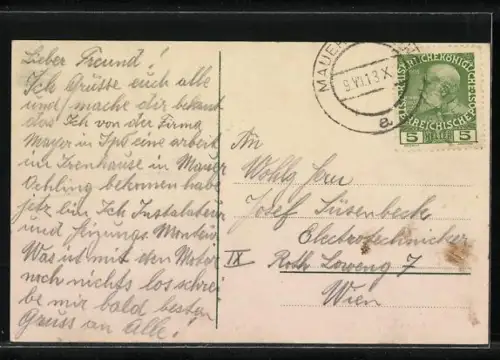 Lieber Freund!
Ich Grüsse euch alle
und mache dir bekant
das Ich von der Firma
Mayer in Ips eine arbeit
im Irenhause in Mauer
Oehling bekomen habe
jetz bin Ich Instalateur
und Heizungs Monteur
Was ist mit den Motor
noch nichts los schrei-
be mir bald besten
Gruss an Alle!
MAUER
9 VII 13 X
a
KAISERLICHE KÖNIGLICHE
ÖSTERREICHISCHE
5 HELLER 5
An
Wohlg. Herrn
Josef Süsenbeck
Electrotechnicker
IX Roth Löweng 7
Wien